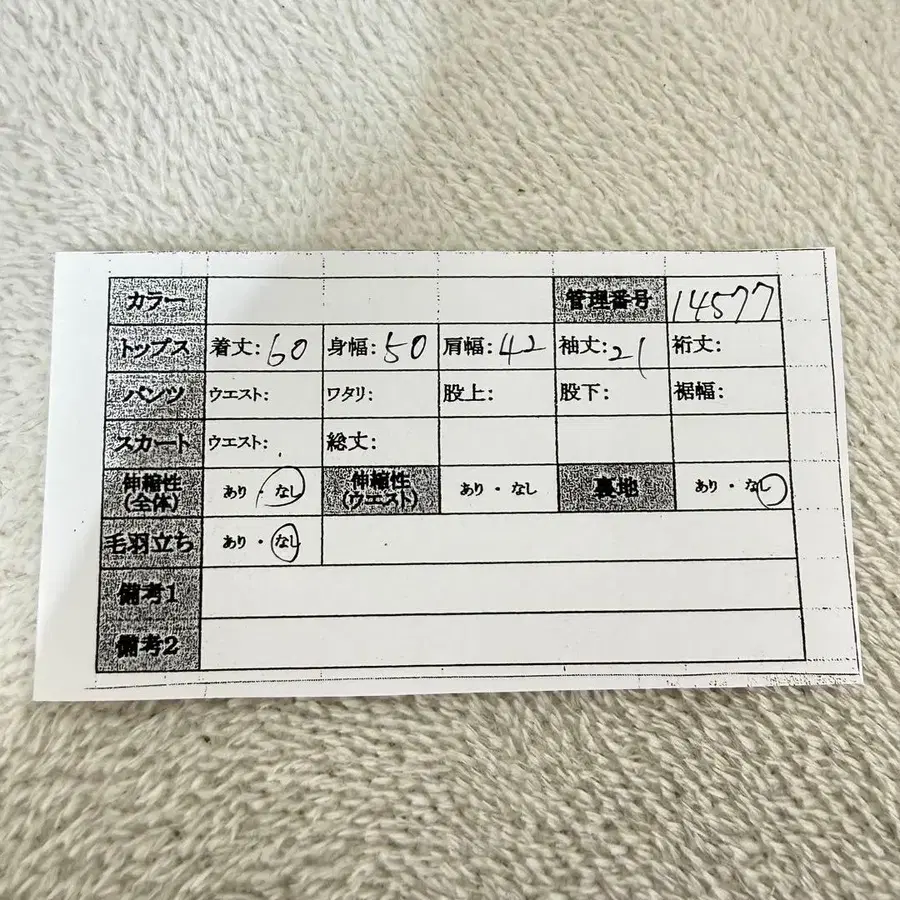 カラー 管理番号 14577
トップス 着丈: 60 身幅: 50 肩幅: 42 袖丈: 21 裄丈:
パンツ ウエスト: ワタリ: 股上: 股下: 裾幅:
スカート ウエスト: 総丈:
伸縮性 (全体) あり ・ なし 伸縮性 (ウエスト) あり ・ なし 裏地 あり ・ なし
毛羽立ち あり ・ なし
備考1
備考2